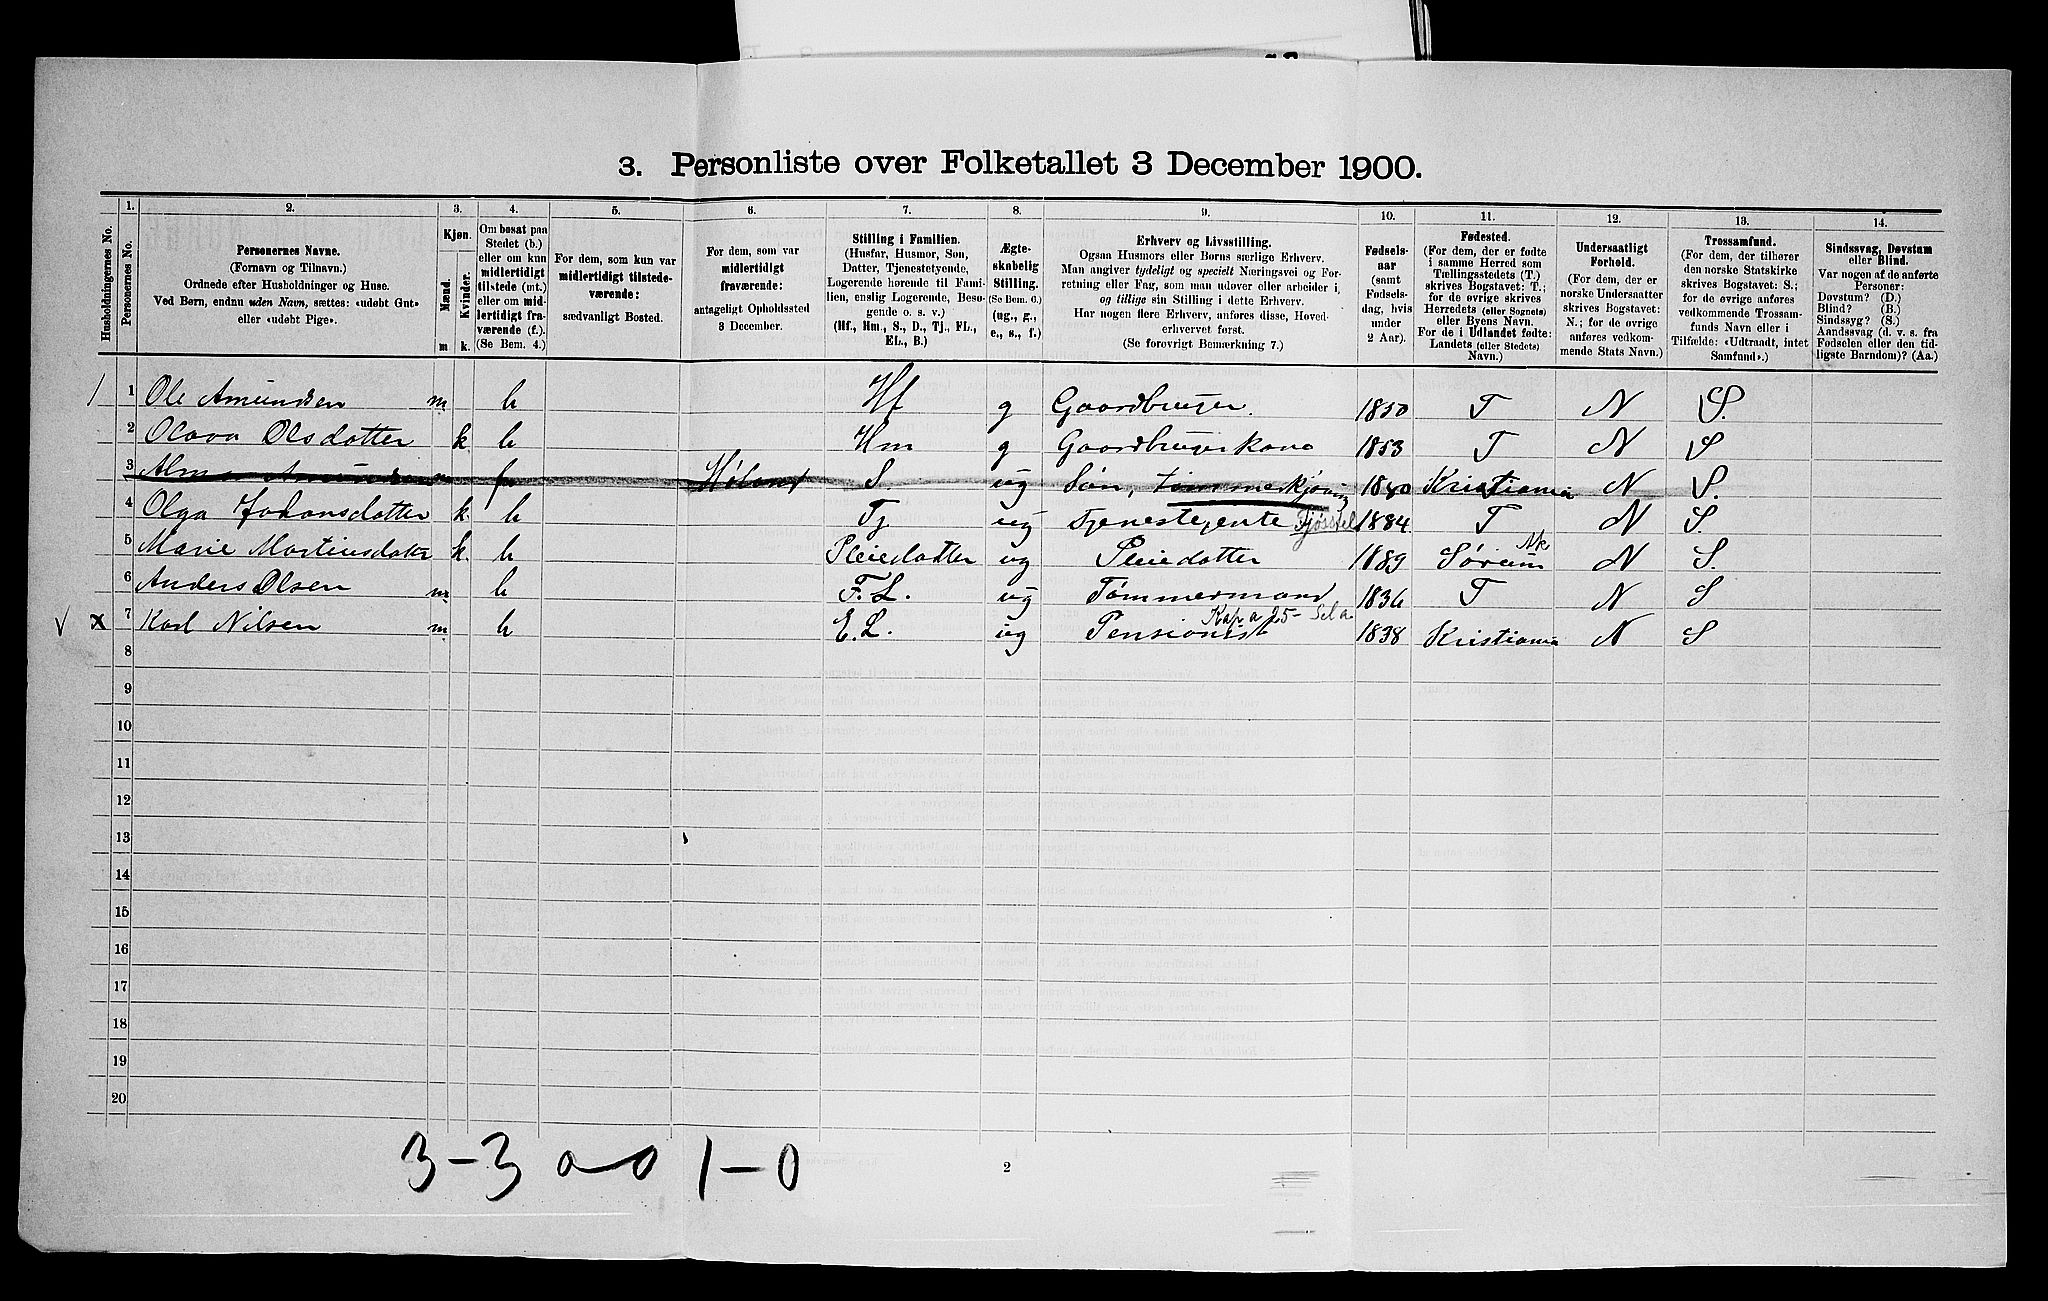 3. Personliste over Folketallet 3 December 1900.
Husholdningernes No.
1. Personernes No.
2. Personernes Navne.
(Fornavn og Tilnavn.)
Ordnede efter Husholdninger og Huse.
Ved Børn, endnu uden Navn, sættes: «udøbt Gut»
eller «udøbt Pige».
3. Kjøn.
Mænd. m
Kvinder. k.
4. Om bosat paa
Stedet (b.)
eller om kun
midlertidigt
tilstede (mt.)
eller om mid-
lertidigt fra-
værende (f.).
(Se Bem. 4.)
5. For dem, som kun var
midlertidigt tilstede-
værende:
sædvanligt Bosted.
6. For dem, som var
midlertidigt
fraværende:
antageligt Opholdssted
3 December.
7. Stilling i Familien.
(Husfar, Husmor, Søn,
Datter, Tjenestetyende,
Logerende hørende til Fami-
lien, enslig Logerende, Besø-
gende o. s. v.)
(Hf., Hm., S., D., Tj., FL.,
EL., B.)
8. Ægte-
skabelig
Stilling.
(Se Bem. 6.)
(ug., g.,
e., s., f.)
9. Erhverv og Livsstilling.
Ogsaa Husmors eller Børns særlige Erhverv.
Man angiver tydeligt og specielt Næringsvei og For-
retning eller Fag, som man udøver eller arbeider i,
og tillige sin Stilling i dette Erhverv.
Har nogen flere Erhverv, anføres disse, Hoved-
erhvervet først.
(Se forøvrigt Bemærkning 7.)
10. Fødsels-
aar
(samt
Fødsels-
dag, hvis
under
2 Aar).
11. Fødested.
(For dem, der er fødte
i samme Herred som
Tællingsstedets (T.)
skrives Bogstavet: T.;
for de øvrige skrives
Herredets (eller Sognets)
eller Byens Navn.
For de i Udlandet fødte:
Landets (eller Stedets)
Navn.)
12. Undersaatligt
Forhold.
(For dem, der er
norske Undersaatter
skrives Bogstavet:
N.; for de øvrige
anføres vedkom-
mende Stats Navn.)
13. Trossamfund.
(For dem, der tilhører
den norske Statskirke
skrives Bogstavet: S.;
for de øvrige anføres
vedkommende Trossam-
funds Navn eller i
Tilfælde: «Udtraadt, intet
Samfund».)
14. Sindssvag, Døvstum
eller Blind.
Var nogen af de anførte
Personer:
Døvstum? (D.)
Blind? (B.)
Sindssyg? (S.)
Aandssvag (d. v. s. fra
Fødselen eller den tid-
ligste Barndom)? (Aa.)
1 1 Ole Amundsen m b Hf g Gaardbruger. 1850 T N S.
2 Olava Olsdatter k b Hm g Gaardbrugerkone 1853 T N S
3 Amundsen m f Høland S ug Søn, tømmerkjøring 1880 Kristiania N S.
4 Olga Johansdatter k. b Tj ug Tjenestejente Fjøsstel 1884 T N S.
5 Marie Martinsdatter k. b Pleiedatter ug Pleiedatter 1889 Sørum Ak N S.
6 Anders Olsen m b F. L. ug Tømmermand 1836 T N S
√ x 7 Karl Nilsen m b E. L. ug Pensionist 1838 Kristiania N S
8
9
10
11
12
13
14
15
16
17
18
19
20
3-3 0-0 1-0
2